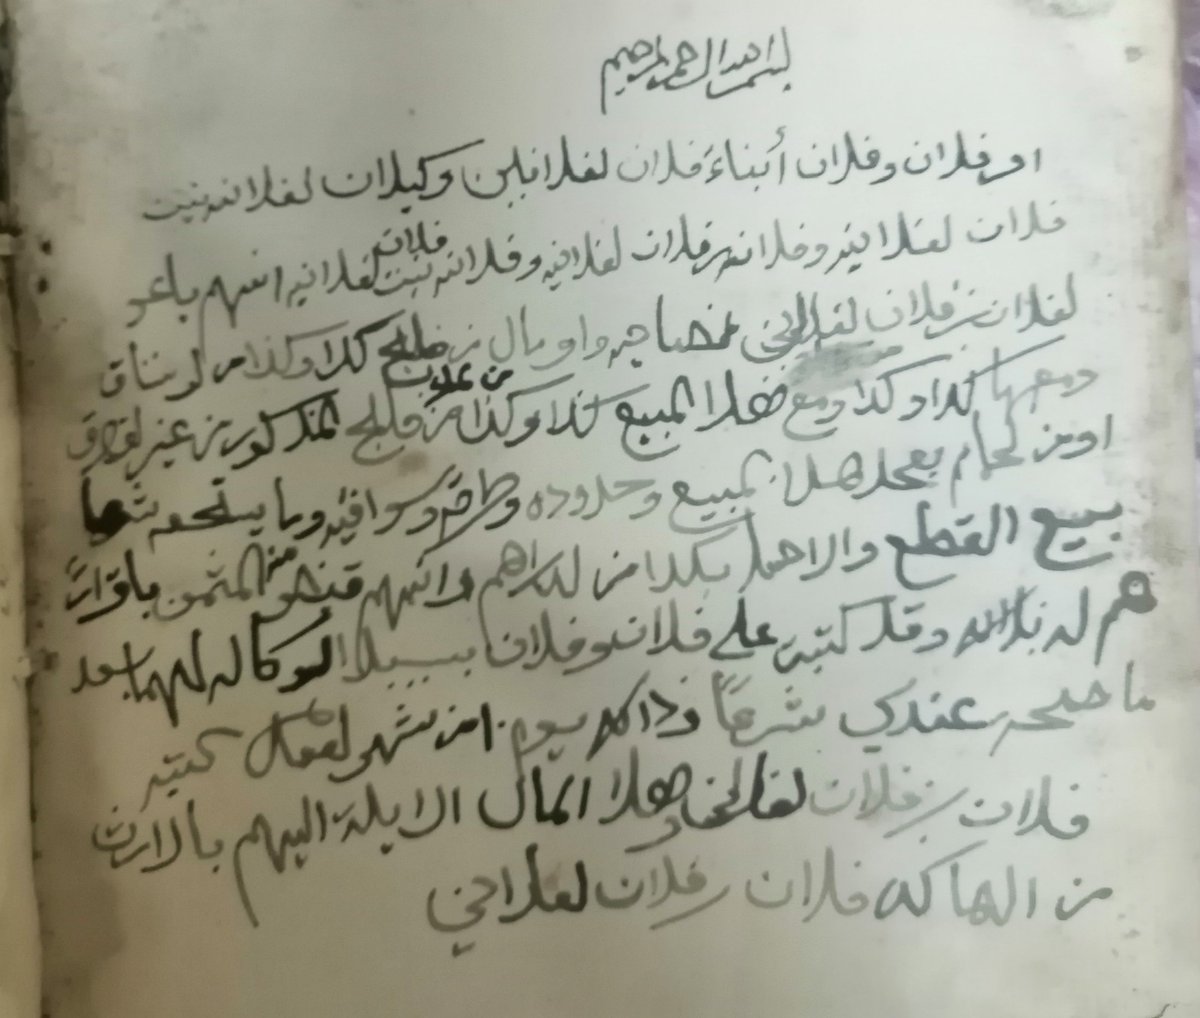 بسم الله الرحمن الرحيم
اقر فلان وفلان أبناء فلان لفلانيين وكيلان لفلانه بنت
فلان لفلانيه وفلانه بنت فلان لفلانيه وفلانه بنت فلان لفلانيه انهم باعو
لفلان بن فلان لفلاني واو مال من فلج كذا وكذا من
ومعها كذا وكذا ومع هذا المبيع كذا وكذا من فلج المذكور من غير
او من بعد هذا المبيع وحدوده وطرقه وسواقيه وما يستحقه شرعا
بيع القطع والاصل بكذا من لدراهم وانهم قبضو منه الثمن باقرار
هم له بذالك وقد كتبت على فلان وفلان بسبيل الوكاله لهما بعد
ما صح عندي شرعا وذالك يوم من شهر كتبه
فلان بن فلان لفلاني وهذا المال الايله اليهم بالارث
من الهالكه فلان بن فلان لفلاني